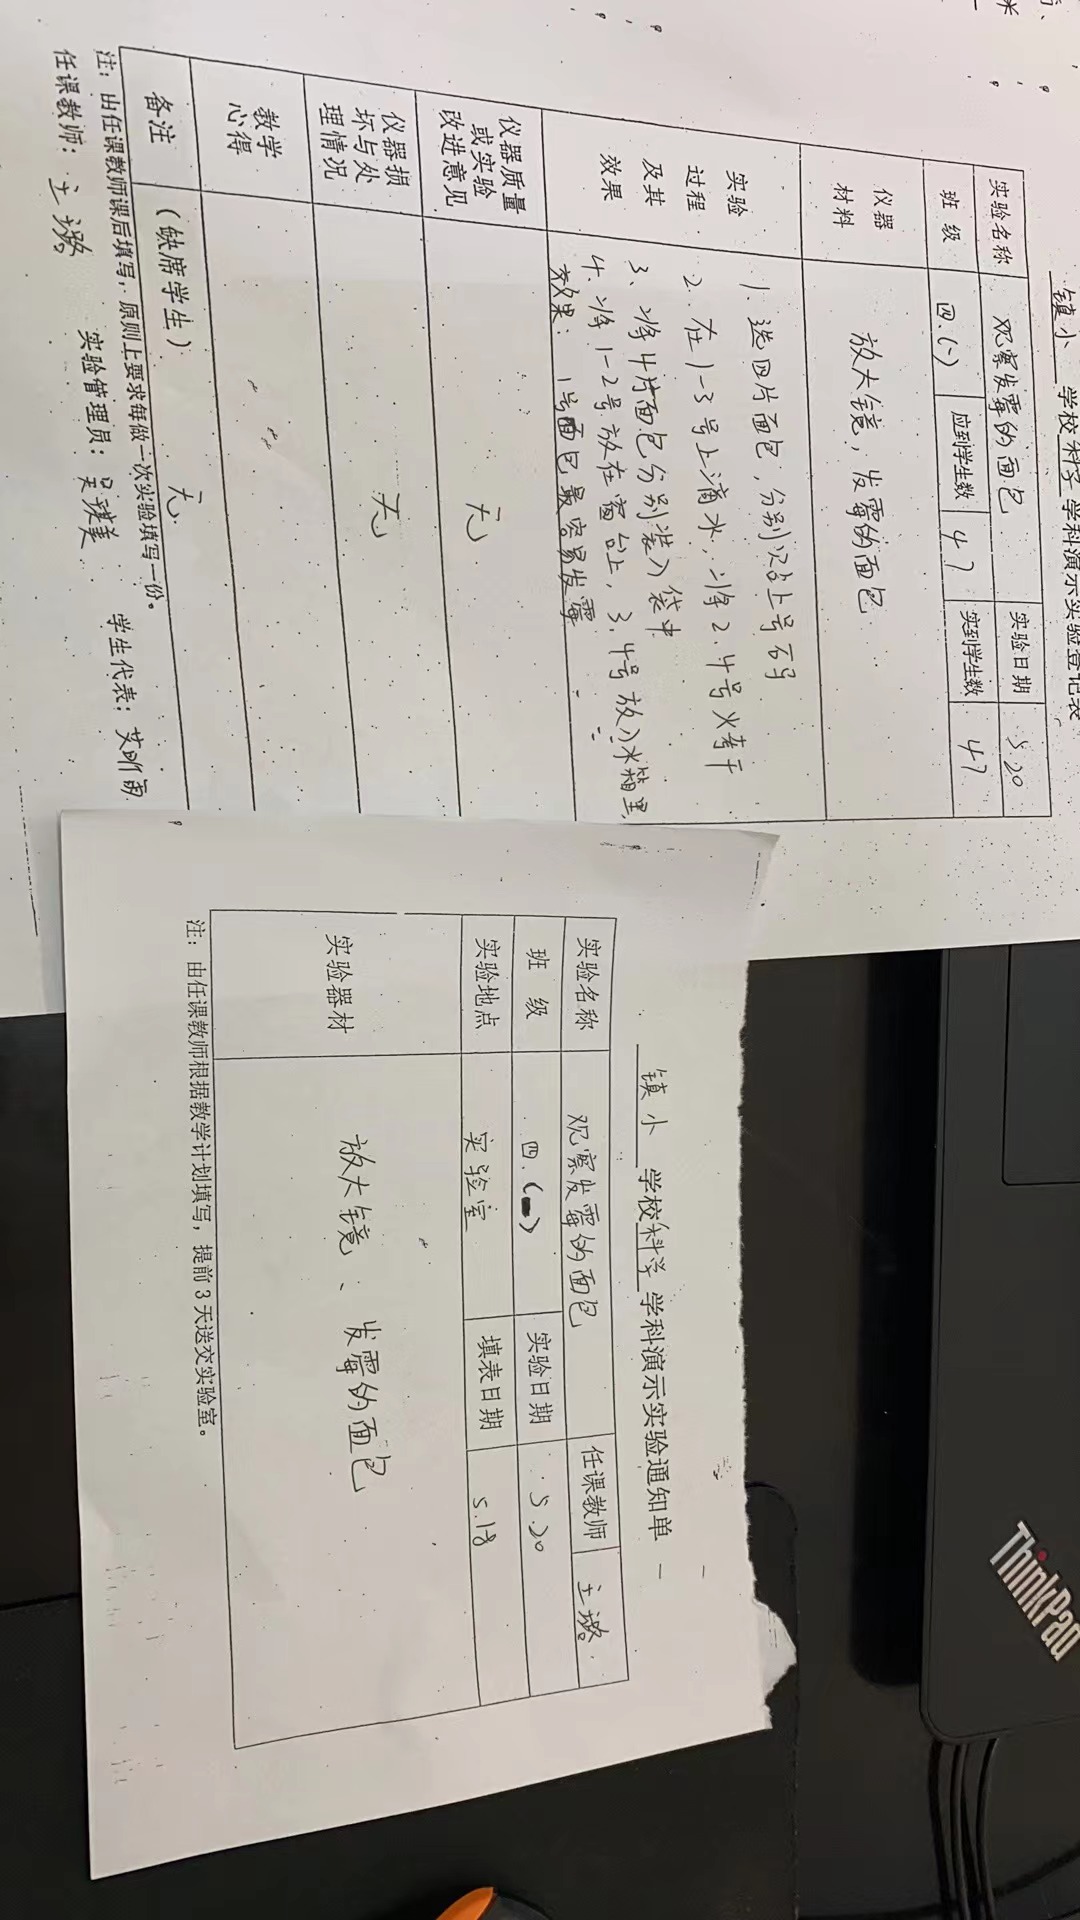 镇小 学校 科学 学科演示实验登记表
实验名称 观察发霉的面包 实验日期 5.20
班 级 四.(一) 应到学生数 47 实到学生数 47
仪器
材料
放大镜，发霉的面包
实验
过程
及其
效果
1. 选四片面包，分别贴上号码
2. 在1-3号上滴水，将2.4号火烤干
3、将4片面包分别装入袋中
4. 将1-2号放在窗台上，3.4号放入冰箱里
效果： 1号面包最容易发霉
仪器质量
或实验
改进意见
无
仪器损
坏与处
理情况
无
教学
心得
备注
（缺席学生）
无
注：由任课教师课后填写，原则上要求每做一次实验填写一份。
任课教师： 实验管理员： 学生代表：艾昕雨
镇小 学校 科学 学科演示实验通知单
实验名称 观察发霉的面包 任课教师
班 级 四.(一) 实验日期 5.20
实验地点 实验室 填表日期 5.18
实验器材 放大镜、发霉的面包
注：由任课教师根据教学计划填写，提前3天送交实验室。
ThinkPad